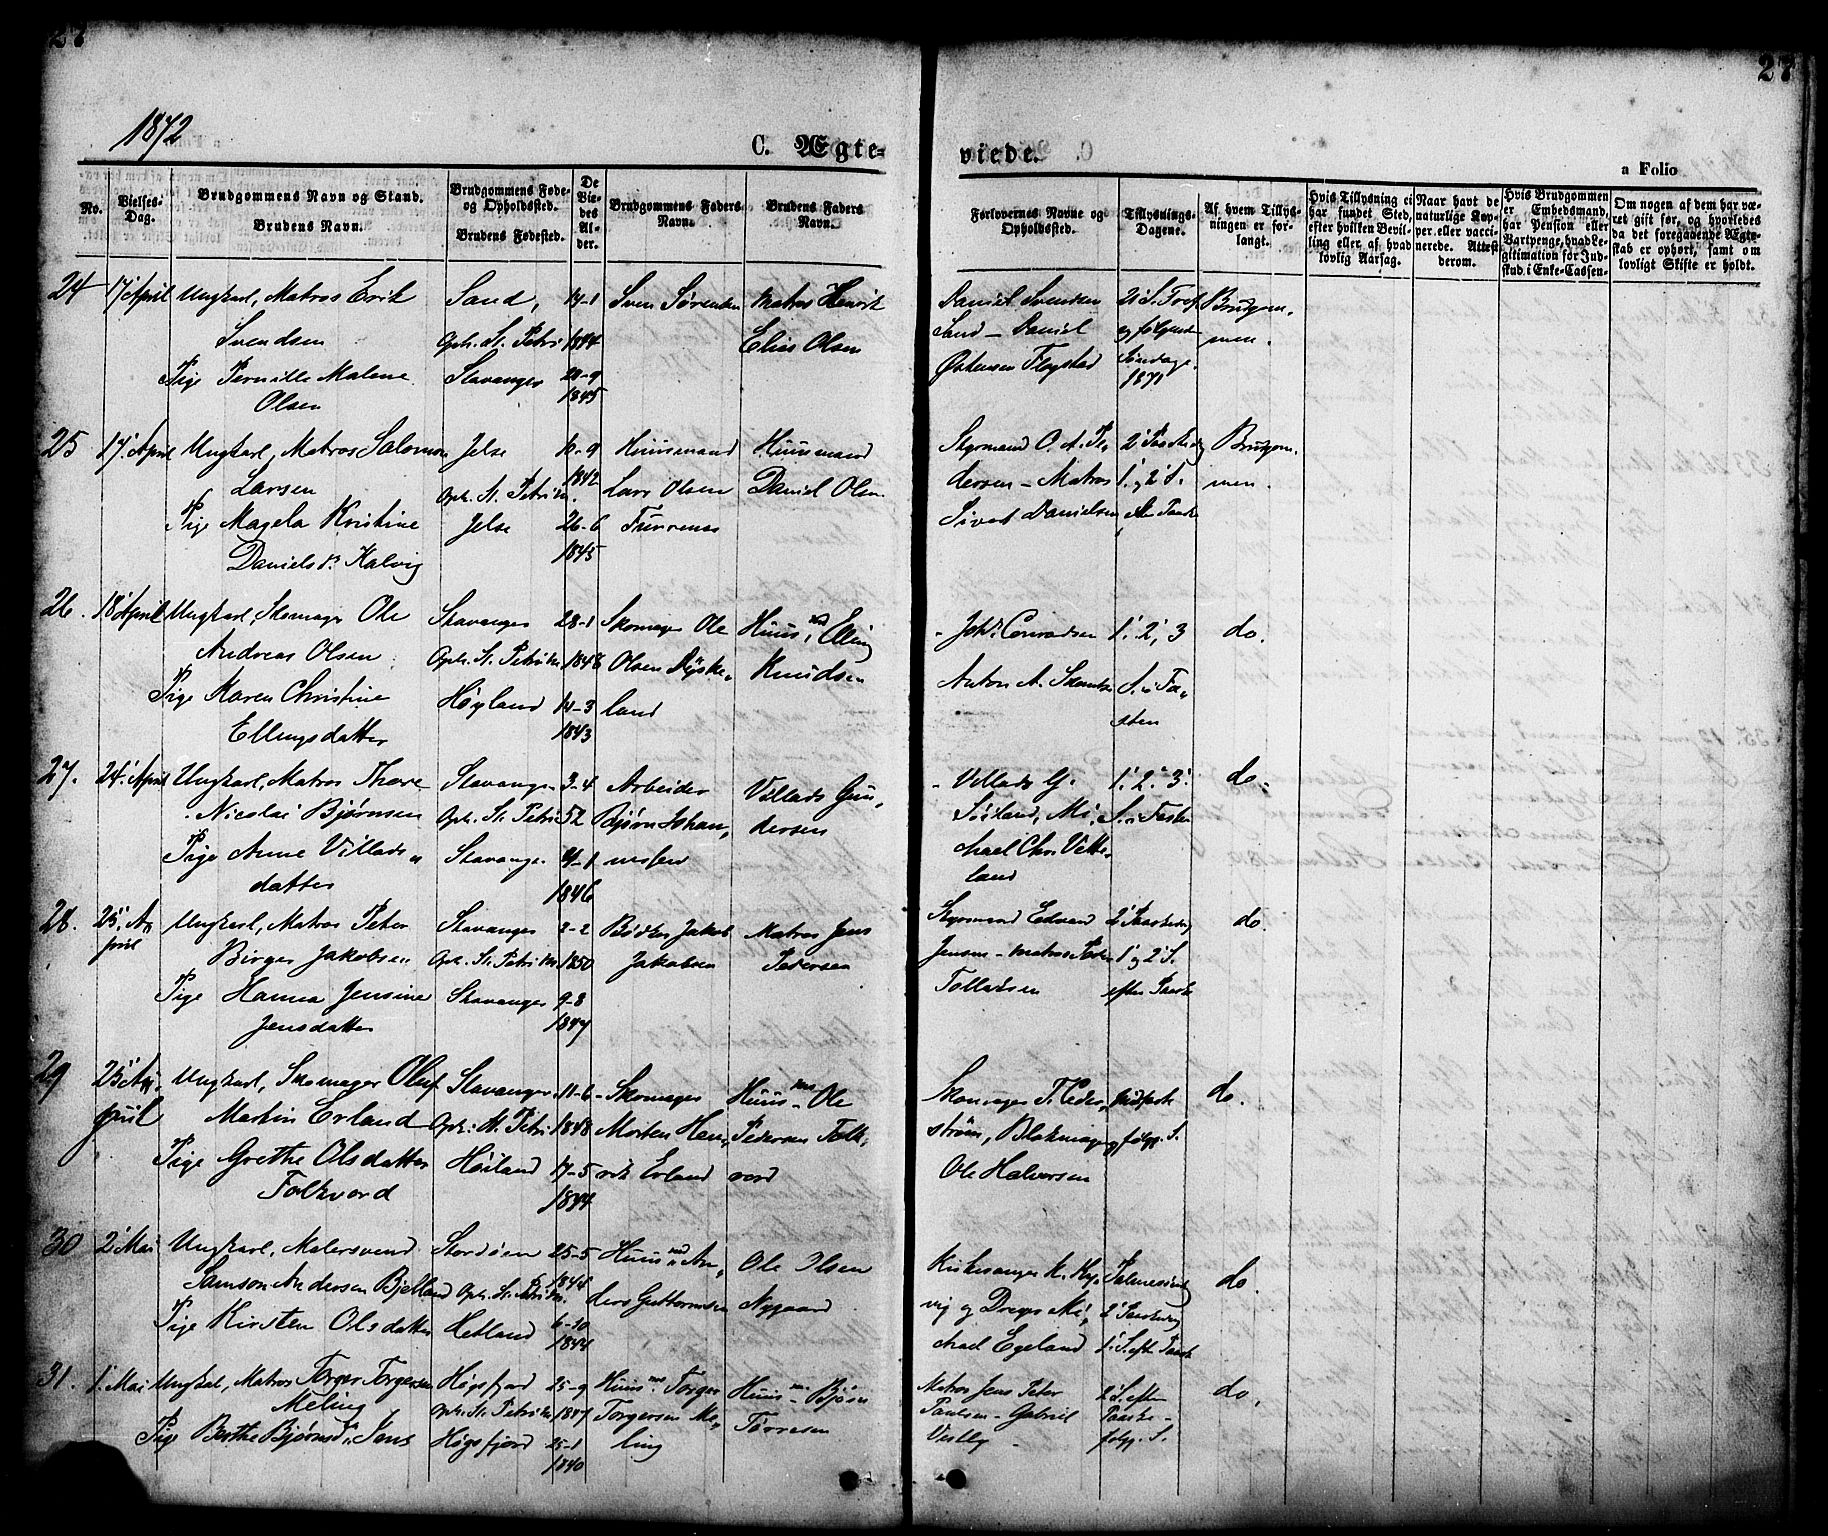 27
27
1872
C. Ægte-
viede.
a Folio
No.
Vielses-
Dag.
Brudgommens Navn og Stand.
Brudens Navn.
Brudgommens Føde-
og Opholdssted.
Brudens Fødested.
De
Vie-
des
Al-
der.
Brudgommens Faders
Navn.
Brudens Faders
Navn.
Forlovernes Navne og
Opholdssted.
Tillysnings-
Dagene.
Af hvem Tillys-
ningen er for-
langt.
Hvis Tillysning ei
har fundet Sted,
efter hvilken Bevil-
ling eller af hvad
lovlig Aarsag.
Naar havt de
naturlige Kop-
per eller vacci-
nerede. Attest
derom.
Hvis Brudgommen
er Embedsmand,
har Pension eller
Vartpenge, hvad Le-
gitimation for Ind-
skud i Enke-Cassen.
Om nogen af dem har væ-
ret gift før, og hvorledes
da det foregaaende Ægte-
skab er ophørt, samt om
lovligt Skifte er holdt.
24 17 April Ungkarl, Matros Erik Sand, 14-1 Sven Sørensen Matros Henrik Daniel Svendsen Brudgom-
Svendsen Oph. St. Petri 1844 Elias Olsen Sand - Daniel og følgende men.
Pige Pernille Malene Stavanger 20-9 Østensen Flogstad Søndage.
Olsen 1845 1871
25 17 April Ungkarl, Matros Salomon Jelse 10-9 Huusmand Huusmand Styrmand O. A. Pe- Brudgom-
Larsen Oph. St. Petri M. 1842 Lars Olsen Daniel Olsen dersen - Matros 1. og 2 S. men.
Pige Magela Kristine Jelse 26-6 Sivert Danielsen eft. Paaske
Danielsdr. Kalvig 1845
26. 18 April Ungkarl, Skomager Ole Stavanger 28-1 Skomager Ole Huusmd Elling Johs. Conradsen 1. 2. 3 do.
Andreas Olsen Oph. St. Petri M. 1848 Olsen Knudsen Anton A. S. i Fa-
Pige Karen Christine Høyland 14-3 land sten
Ellingsdatter 1843
27. 24 April Ungkarl, Matros Thore Stavanger 3-4 Arbeider Villads Gun- Villads G. 1. 2. 3. do.
Nicolai Bjørnsen Oph. St. Petri 52 Bjørn Johan- dersen Søiland, Mi- S. i Fasten
Pige Anne Villads- Stavanger 4-1 nesen chael Chr. Vetter-
datter 1846 land
28. 25 A- Ungkarl, Matros Peter Stavanger 2-2 Bødker Jakob Matros Jens Styrmand Edvard do.
pril Birger Jakobsen Oph. St. Petri M. 1850 Jakobsen Pedersen Jensen - Matros Peder 1 og 2 S.
Pige Hanna Jensine Stavanger 9-8 Tolladsen efter Paaske
Jensdatter 1847
29 25 A- Ungkarl, Skomager Oluf Stavanger 11-6 Skomager Huusmd Ole Skomager T. Peder- do.
pril Martin Erland Oph. St. Petri 1848 Morten Hen- Pedersen Folk- strøm, Blokmager og følg. S.
Pige Grethe Olsdatter Høiland 17-5 rik Erland vord Ole Halvorsen
Folkvord 1844
30 2 Mai Ungkarl, Malersvend Stordøen 25-5 Huusmd An- Ole Olsen Kirkesanger K. Hy- Palmesøndag do.
Samson Andersen Bjelland Oph. St. Petri M. 1844 ders Guttormsen Nygaard vig og Dreyer Mi-
Pige Kirsten Olsdatter Hetland 6-10 chael Egeland 1. S. eft. Paaske
1844
31. 1. Mai Ungkarl, Matros Torger Torgersen Høgsfjord 25-9 Huusmd Torger Huusmd Bjørn Matros Jens Peter 2 S. eft. do.
Meling Oph. St. Petri M. 1847 Torgersen Me- Tørresen Paulsen - Gabriel Paaske -
Pige Berthe Bjørnsdr. Høgsfjord 25-1 ling Vestly følg. S.
1840